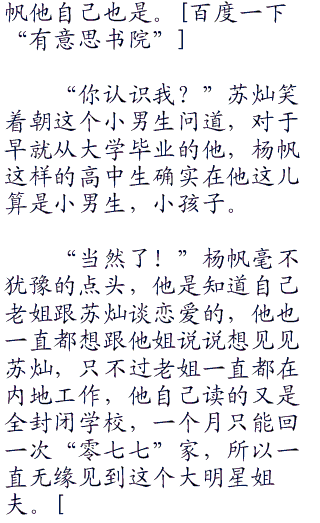 帆他自己也是。[百度一下
“有意思书院”]
“你认识我？”苏灿笑
着朝这个小男生问道，对于
早就从大学毕业的他，杨帆
这样的高中生确实在他这儿
算是小男生，小孩子。
“当然了！”杨帆毫不
犹豫的点头，他是知道自己
老姐跟苏灿谈恋爱的，他也
一直都想跟他姐说说想见见
苏灿，只不过老姐一直都在
内地工作，他自己读的又是
全封闭学校，一个月只能回
一次“零七七”家，所以一
直无缘见到这个大明星姐
夫。[